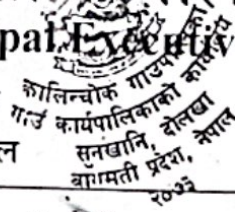 pal Executiv
कालिन्चोक गाउँपा
गाउँ कार्यपालिकाको कार्यालय
सुनखानि, दोलखा
बागमती प्रदेश, नेपाल
२०७३
ल